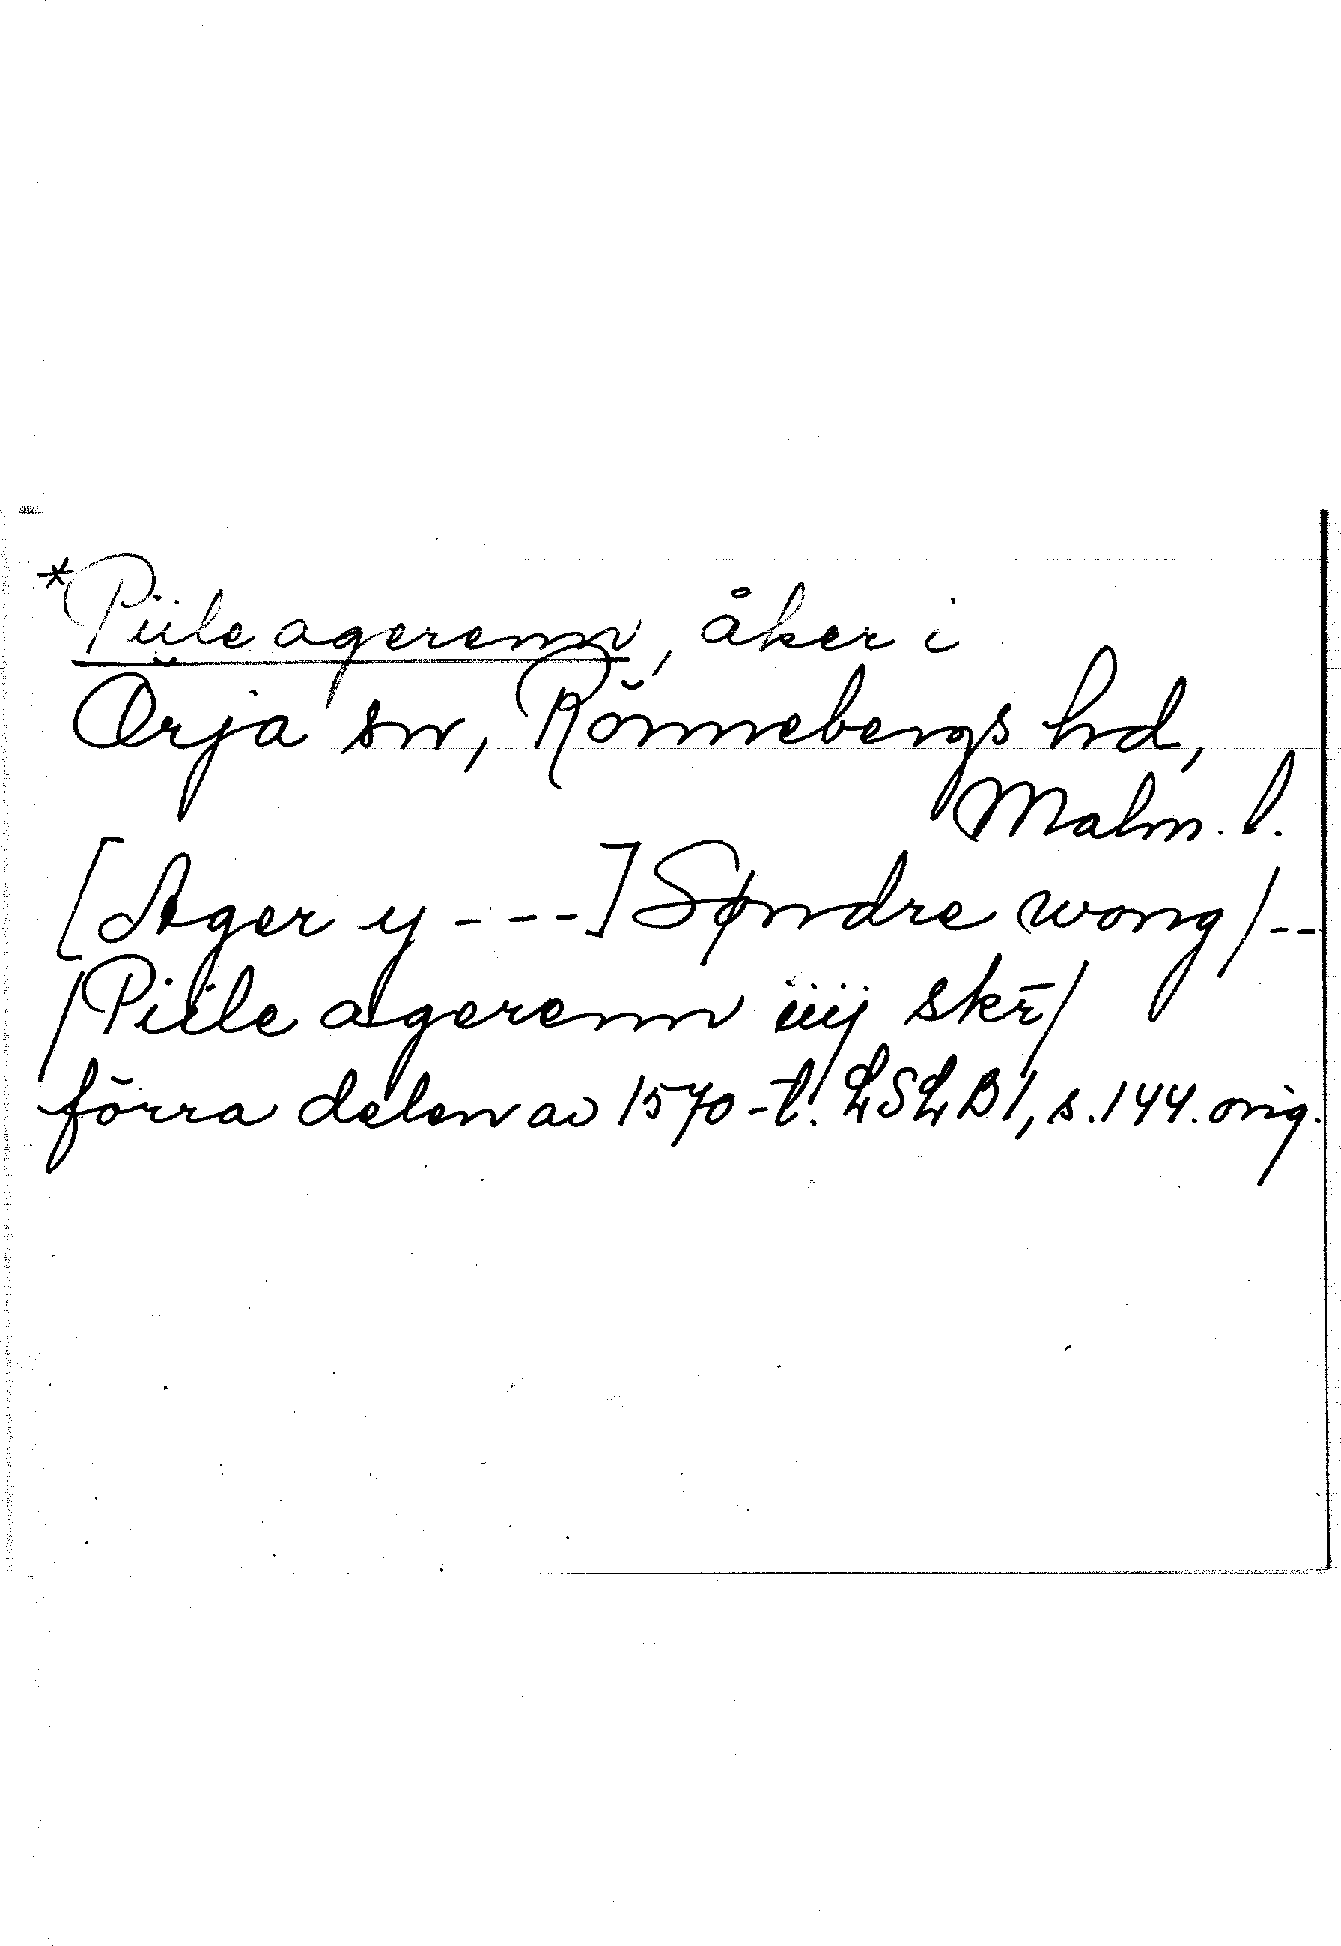 *Piile agerenn, åker i
Örja sn, Rönnebergs hd,
Malm. l.
[Ager y ---] Søndre wong/--
/Piile agerenn iiij skr̄/
förra delen av 1570-t. LSLB1, s.144. orig.